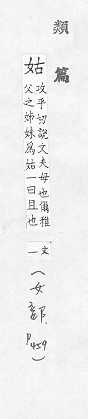 類
篇
姑
攻乎切說文夫母也爾雅
父之姊妹為姑一曰且也
文一
(女部 P459)